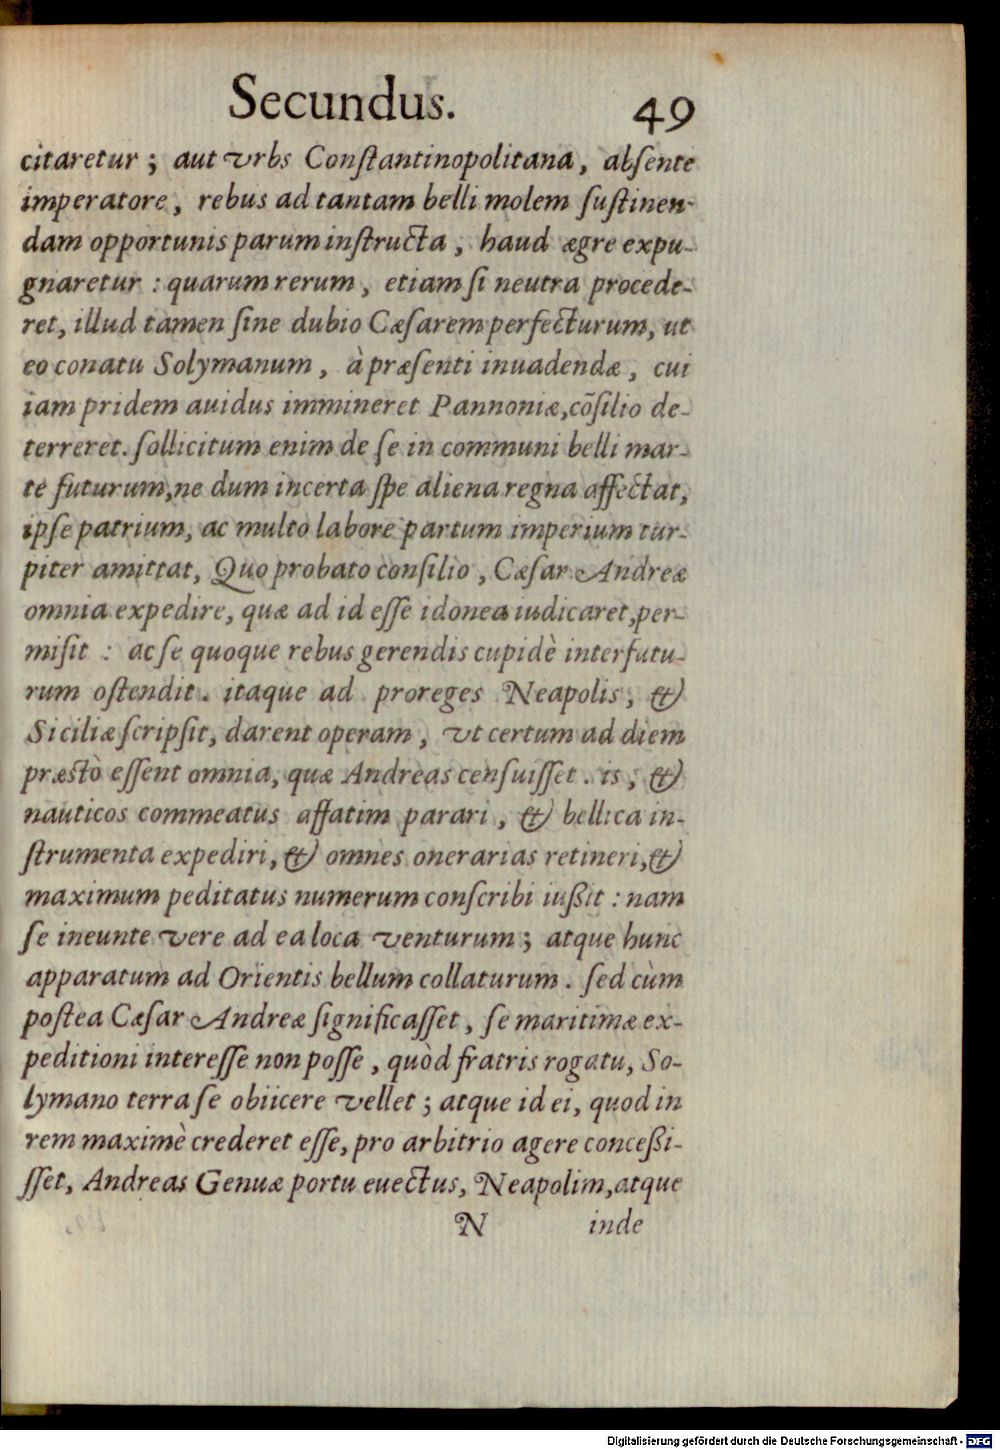 Secundus. 49
citaretur ; aut vrbs Conſtantinopolitana, abſente
imperatore, rebus ad tantam belli molem ſuſtinen-
dam opportunis parum inſtructa, haud ægre expu-
gnaretur : quarum rerum, etiam ſi neutra procede-
ret, illud tamen ſine dubio Cæſarem perfecturum, ut
eo conatu Solymanum, à præſenti inuadendæ, cui
iam pridem auidus immineret Pannoniæ,cõſilio de-
terreret. ſollicitum enim de ſe in communi belli mar-
te futurum,ne dum incerta ſpe aliena regna affectat,
ipſe patrium, ac multo labore partum imperium tur-
piter amittat, Quo probato conſilio, Cæſar Andreæ
omnia expedire, quæ ad id eſſe idonea iudicaret,per-
miſit : ac ſe quoque rebus gerendis cupidè interfutu-
rum oſtendit. itaque ad proreges Neapolis, &
Siciliæ ſcripſit, darent operam, vt certum ad diem
præstò eſſent omnia, quæ Andreas cenſuiſſet. is, &
nauticos commeatus affatim parari, & bellica in-
ſtrumenta expediri, & omnes onerarias retineri,&
maximum peditatus numerum conſcribi iußit : nam
ſe ineunte vere ad ea loca venturum ; atque hunc
apparatum ad Orientis bellum collaturum. ſed cùm
poſtea Cæſar Andreæ ſignificaſſet, ſe maritimæ ex-
peditioni intereſſe non poſſe, quòd fratris rogatu, So-
lymano terra ſe obiicere vellet ; atque id ei, quod in
rem maximè crederet eſſe, pro arbitrio agere conceßi-
ſſet, Andreas Genuæ portu euectus, Neapolim,atque
N inde
Digitalisierung gefördert durch die Deutsche Forschungsgemeinschaft - DFG